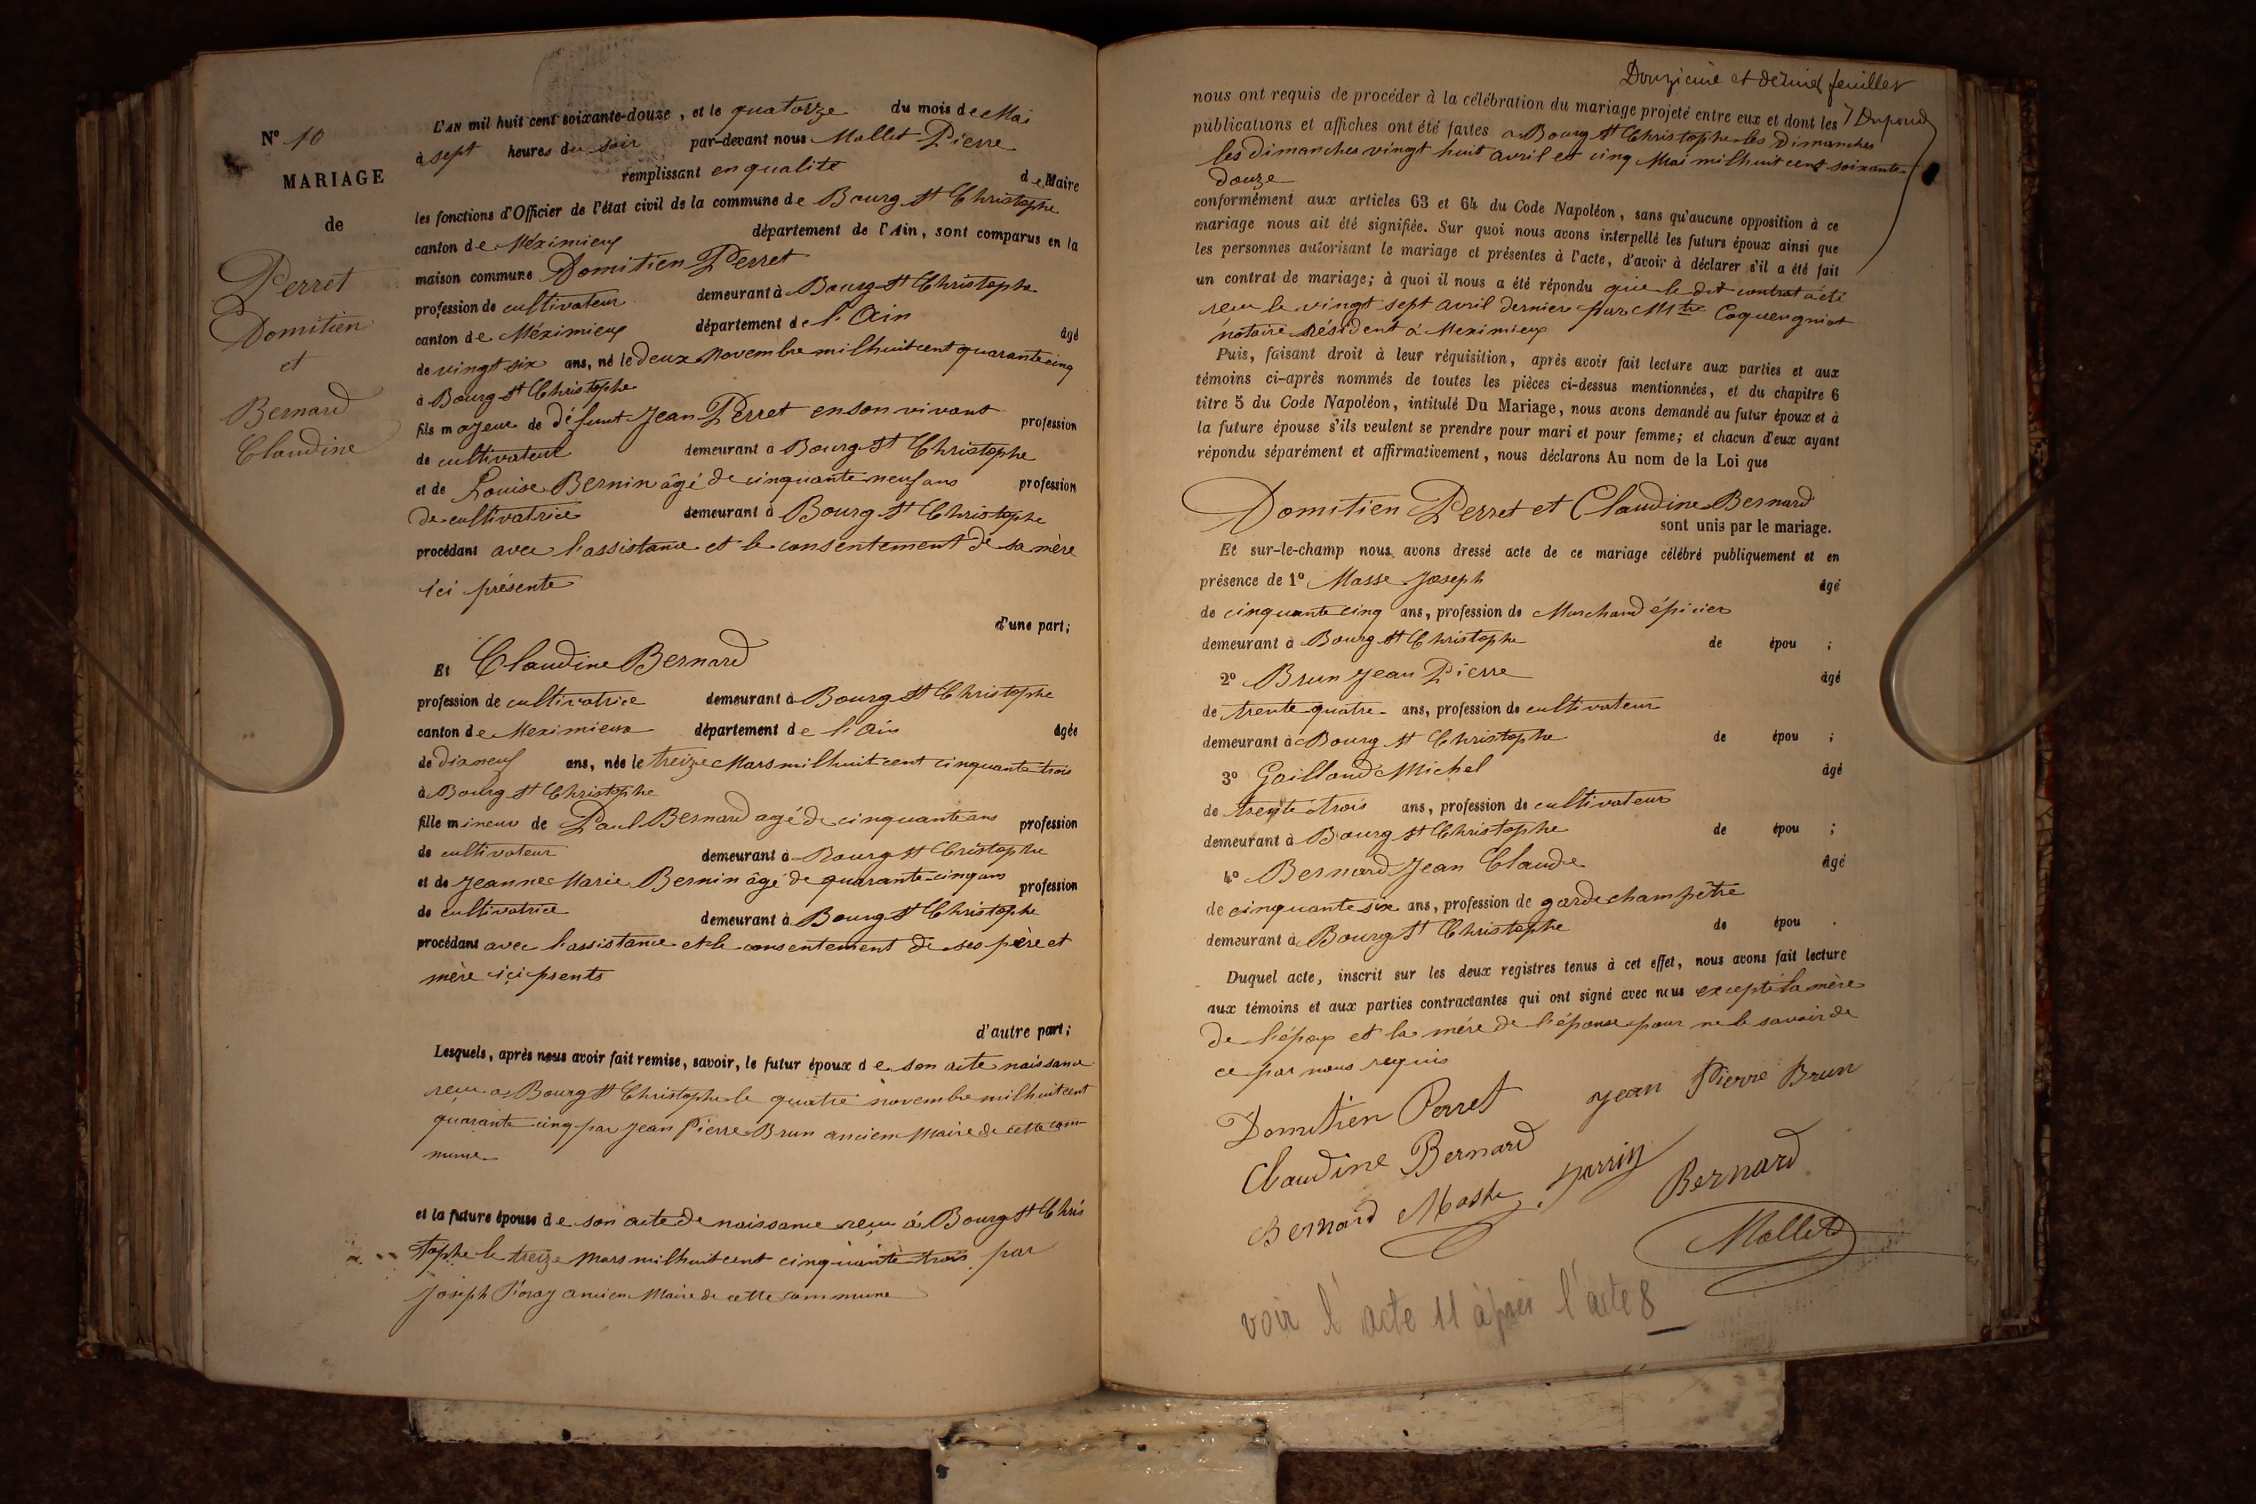 N° 10
MARIAGE
de
Perret
Domitien
et
Bernard
Claudine
L'AN mil huit cent soixante-douze, et le quatorze du mois de Mai
à sept heures du soir par-devant nous Mollet Pierre
remplissant en qualité de Maire
les fonctions d'Officier de l'état civil de la commune de Bourg St Christophe
canton de Méximieux département de l'Ain, sont comparus en la
maison commune Domitien Perret
profession de cultivateur demeurant à Bourg St Christophe
canton de Méximieux département de l'Ain âgé
de vingt six ans, né le deux Novembre mil huit cent quarante cinq
à Bourg St Christophe
fils majeur de défunt Jean Perret en son vivant profession
de cultivateur demeurant à Bourg St Christophe
et de Louise Bernin âgé de cinquante neuf ans profession
de cultivatrice demeurant à Bourg St Christophe
procédant avec l'assistance et le consentement de sa mère
ici présente
d'une part;
Et Claudine Bernard
profession de cultivatrice demeurant à Bourg St Christophe
canton de Meximieux département de l'Ain âgée
de dix neuf ans, née le treize Mars mil huit cent cinquante trois
à Bourg St Christophe
fille mineur de Paul Bernard agé de cinquante ans profession
de cultivateur demeurant à Bourg St Christophe
et de Jeanne Marie Bernin âgé de quarante-cinq ans profession
de cultivatrice demeurant à Bourg St Christophe
procédant avec l'assistance et le consentement de ses père et
mère ici psents
d'autre part;
Lesquels, après nous avoir fait remise, savoir, le futur époux de son acte naissance
reçu à Bourg St Christophe le quatre novembre mil huit cent
quarante cinq par Jean Pierre Brun ancien Maire de cette com-
mune
et la future épouse de son acte de naissance reçu à Bourg St Chris
tophe le treize Mars mil huit cent cinquante trois par
Joseph ancien Maire de cette commune
Douzième et dernier feuillet
Dupond
nous ont requis de procéder à la célébration du mariage projeté entre eux et dont les
publications et affiches ont été faites à Bourg St Christophe les Dimanches
les dimanches vingt huit avril et cinq Mai mil huit cent soixante
douze
conformément aux articles 63 et 64 du Code Napoléon, sans qu'aucune opposition à ce
mariage nous ait été signifiée. Sur quoi nous avons interpellé les futurs époux ainsi que
les personnes autorisant le mariage et présentes à l'acte, d'avoir à déclarer s'il a été fait
un contrat de mariage; à quoi il nous a été répondu que le dit contrat a été
reçu le vingt sept avril dernier par Mtre Coquengniot
notaire résident à Meximieux
Puis, faisant droit à leur réquisition, après avoir fait lecture aux parties et aux
témoins ci-après nommés de toutes les pièces ci-dessus mentionnées, et du chapitre 6
titre 5 du Code Napoléon, intitulé Du Mariage, nous avons demandé au futur époux et à
la future épouse s'ils veulent se prendre pour mari et pour femme; et chacun d'eux ayant
répondu séparément et affirmativement, nous déclarons Au nom de la Loi que
Domitien Perret et Claudine Bernard
sont unis par le mariage.
Et sur-le-champ nous avons dressé acte de ce mariage célébré publiquement et en
présence de 1° Masse Joseph âgé
de cinquante cinq ans, profession de Marchand épicier
demeurant à Bourg St Christophe de épou ;
2° Brun Jean Pierre âgé
de trente quatre ans, profession de cultivateur
demeurant à Bourg St Christophe de épou ;
3° Gailland Michel âgé
de trente trois ans, profession de cultivateur
demeurant à Bourg St Christophe de épou ;
4° Bernard Jean Claude âgé
de cinquante six ans, profession de garde champêtre
demeurant à Bourg St Christophe de épou .
Duquel acte, inscrit sur les deux registres tenus à cet effet, nous avons fait lecture
aux témoins et aux parties contractantes qui ont signé avec nous excepté la mère
de l'époux et la mère de l'épouse pour ne le savoir de
ce par nous requis
Domitien Perret Jean Pierre Brun
Claudine Bernard
Bernard Masse Bernard
Mollet
voir l'acte 11 après l'acte 8